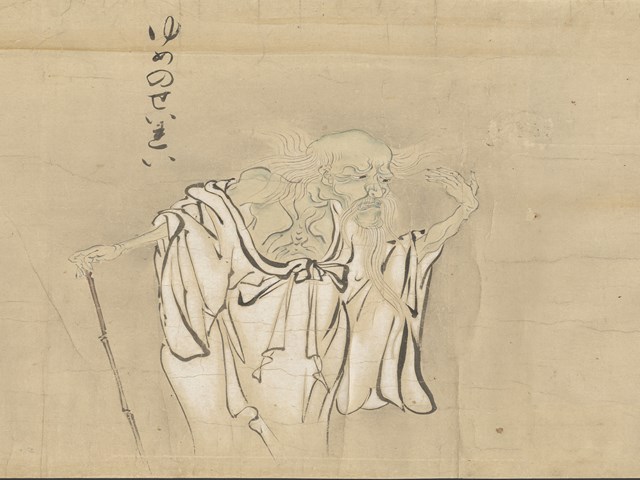 ゆめのせいれい